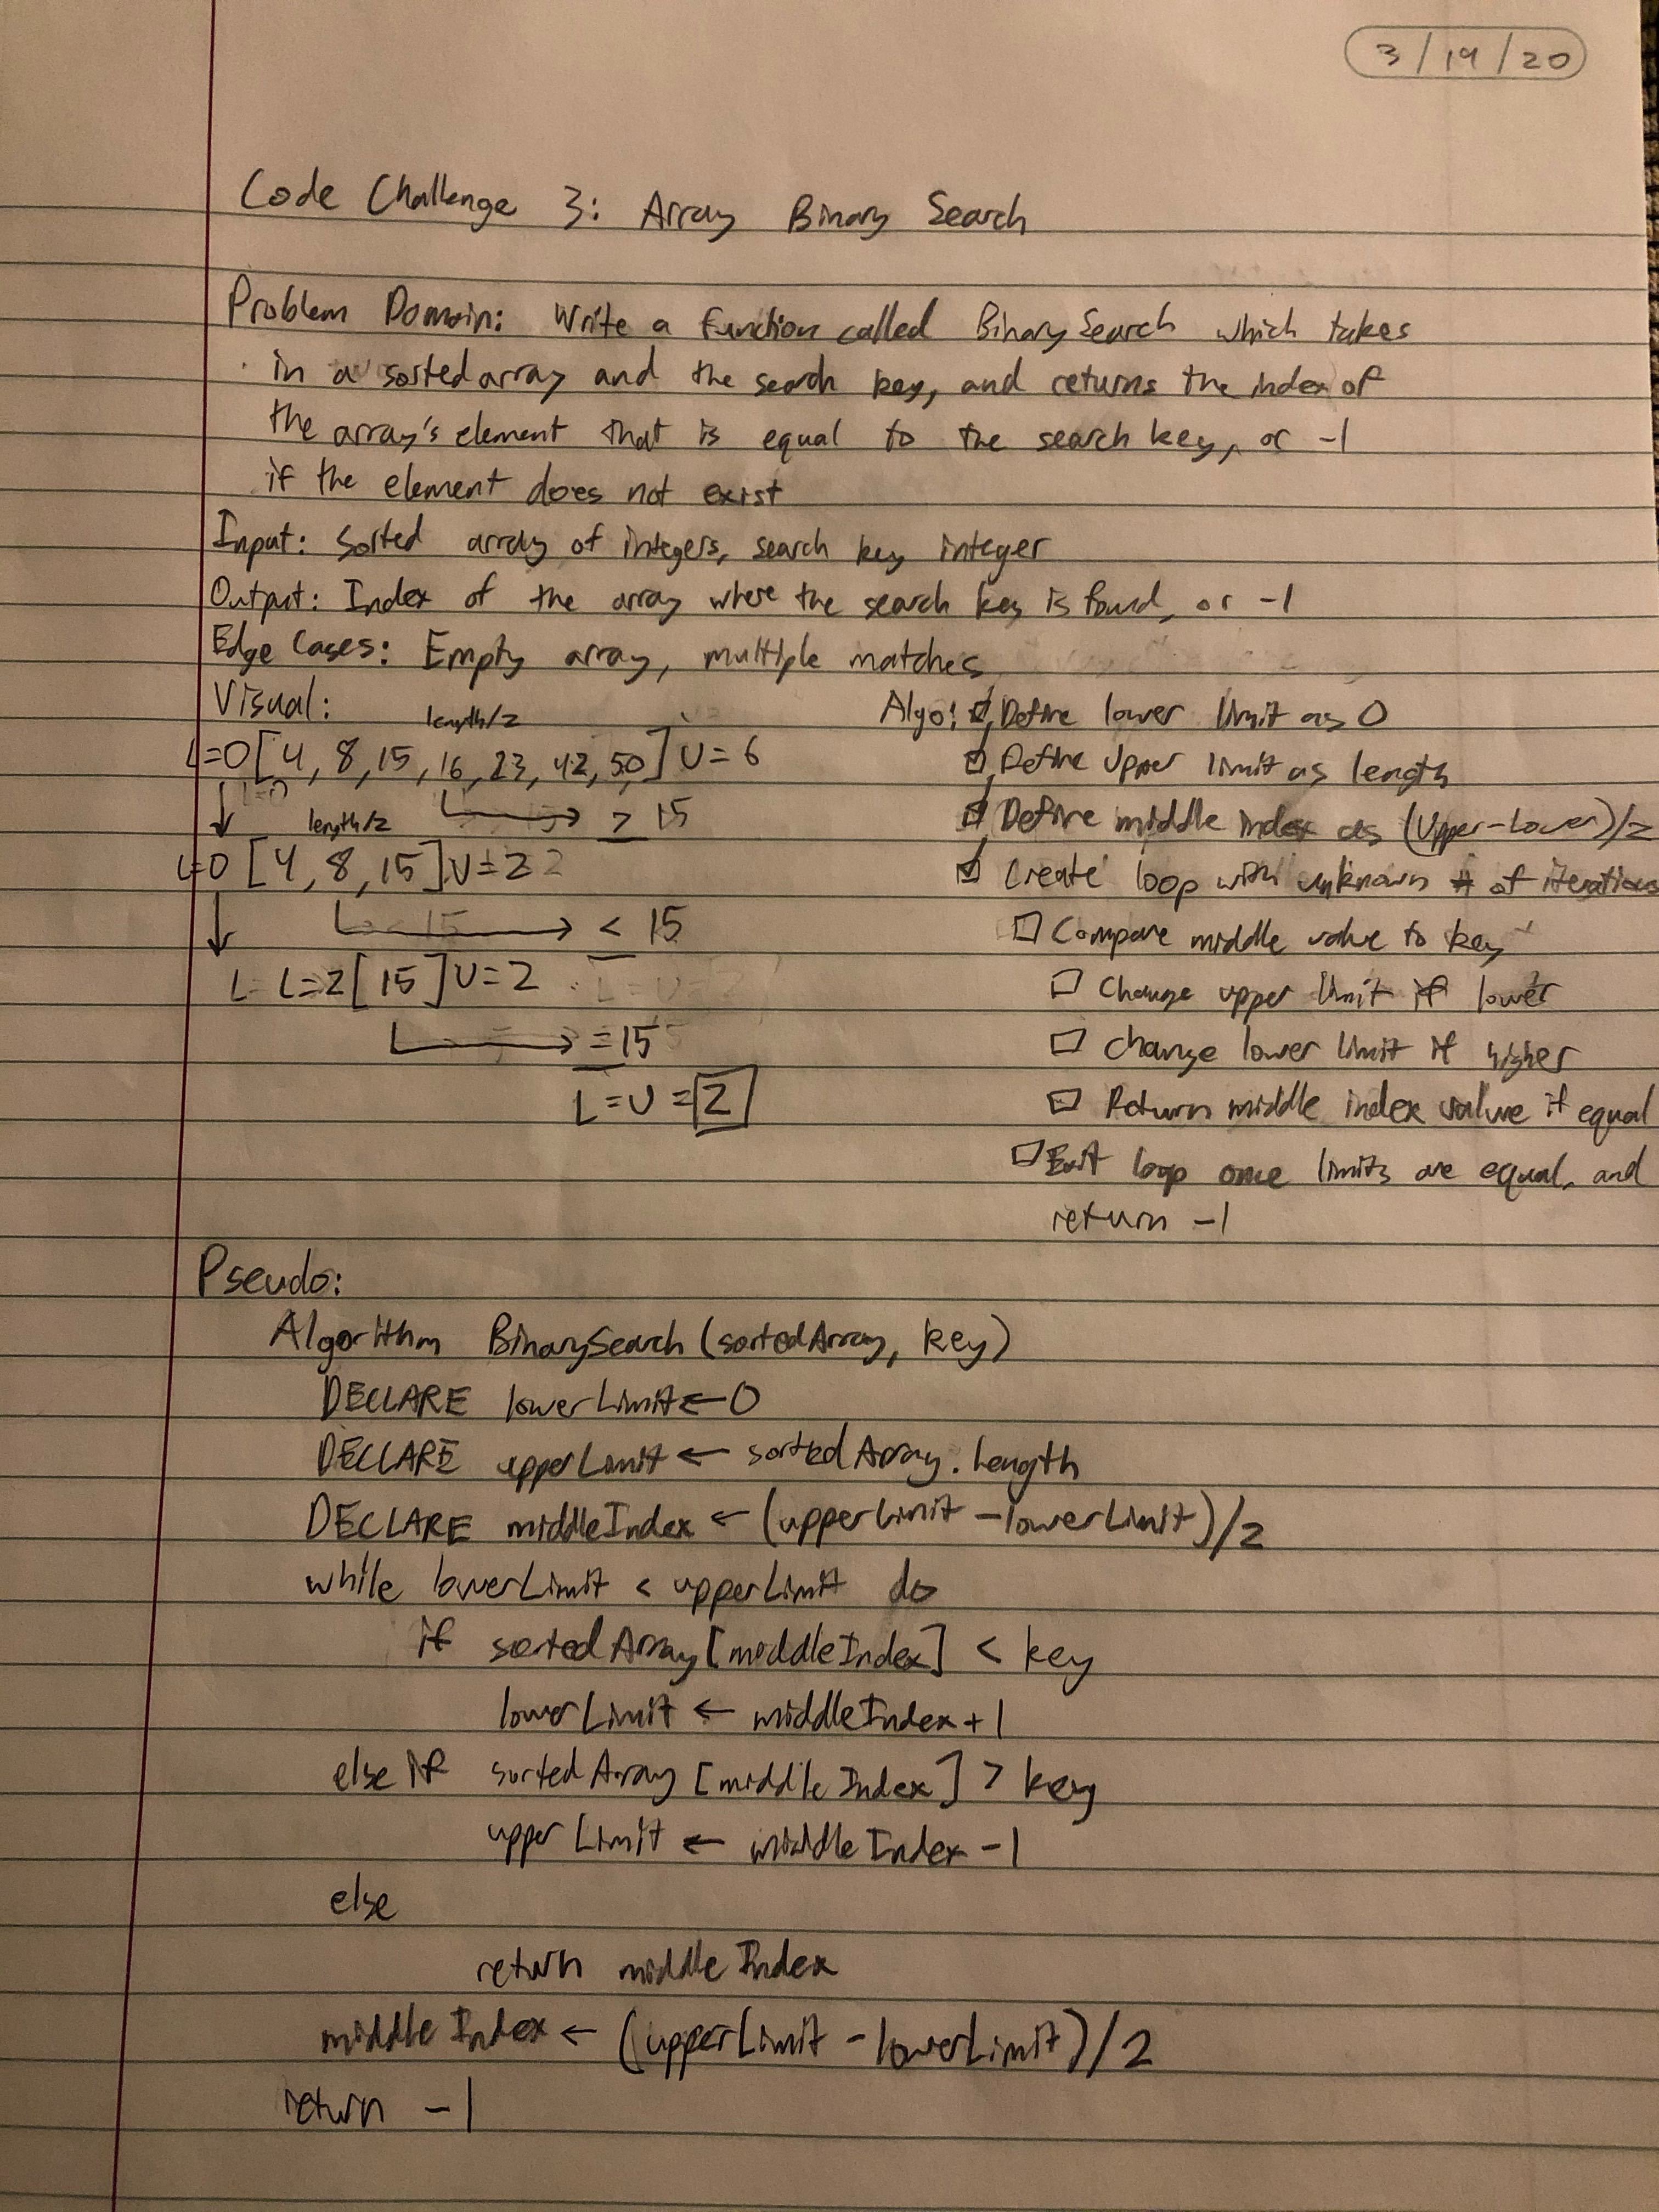 3/19/20
Code Challenge 3: Array Binary Search
Problem Domain: Write a function called BinarySearch which takes
in a sorted array and the search key, and returns the index of
the array's element that is equal to the search key, or -1
if the element does not exist
Input: Sorted array of integers, search key integer
Output: Index of the array where the search key is found, or -1
Edge Cases: Empty array, multiple matches
Visual:
length/2
L=0[4, 8, 15, 16, 23, 42, 50]U=6
> 15
length/2
L=0 [4, 8, 15]U=2
< 15
L=2[15]U=2
=15
L=U=2
Algo: Define lower limit as 0
Define Upper limit as length
Define middle index as (Upper-Lower)/2
Create loop with unknown # of iterations
Compare middle value to key
Change upper limit if lower
Change lower limit if higher
Return middle index value if equal
Exit loop once limits are equal, and
return -1
Pseudo:
Algorithm BinarySearch(sortedArray, key)
DECLARE lowerLimit←0
DECLARE upperLimit ← sortedArray.Length
DECLARE middleIndex ← (upperLimit-lowerLimit)/2
while lowerLimit < upperLimit do
if sortedArray[middleIndex] < key
lowerLimit ← middleIndex+1
else if sortedArray[middleIndex] > key
upperLimit ← middleIndex-1
else
return middleIndex
middleIndex ← (upperLimit-lowerLimit)/2
return -1